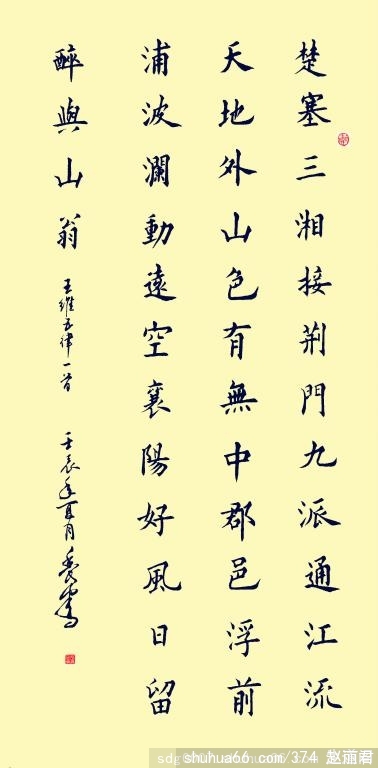 楚塞三湘接荆門九派通江流
天地外山色有無中郡邑浮前
浦波瀾動遠空襄陽好風日留
醉與山翁 王維五律一首 壬辰年夏月
shuhua66.com/374 赵丽君